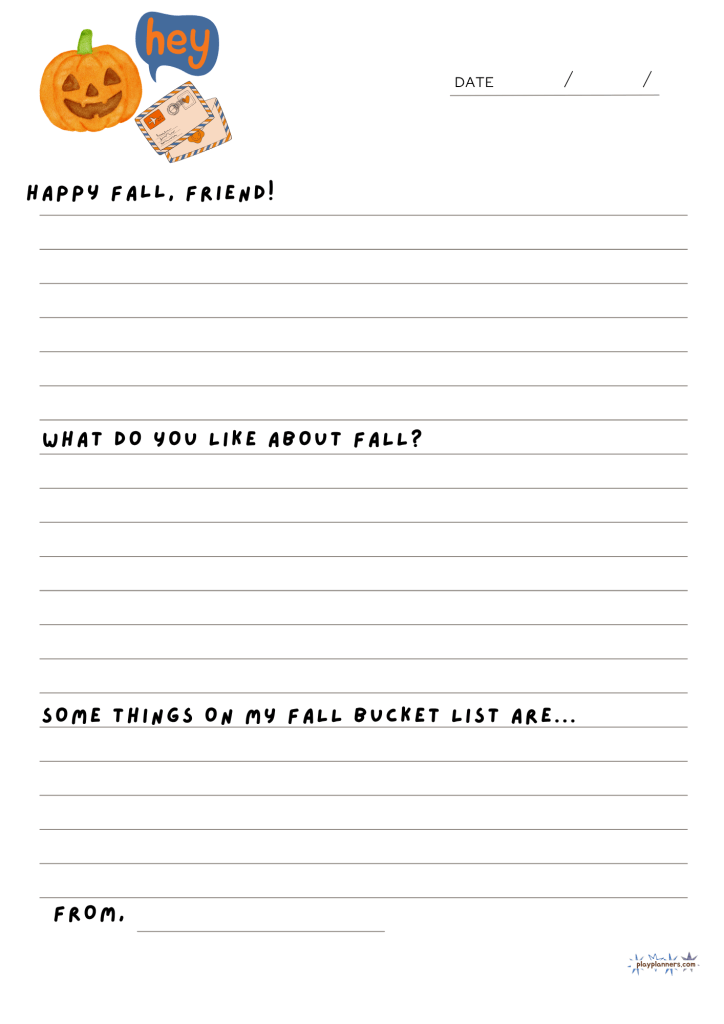 hey
DATE / /
HAPPY FALL, FRIEND!
WHAT DO YOU LIKE ABOUT FALL?
SOME THINGS ON MY FALL BUCKET LIST ARE...
FROM,
playplanners.com